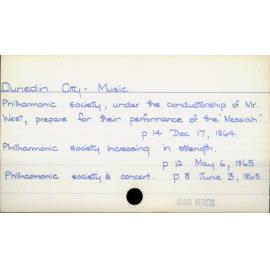 Dunedin City - Music
Philharmonic society, under the conductorship of Mr.
West, prepare for their performance of the "Messiah"
p 14 Dec 17, 1864
Philharmonic society increasing in strength.
p 12 May 6, 1865
Philharmonic society's concert. p 8 June 3, 1865.
OTAGO WITNESS